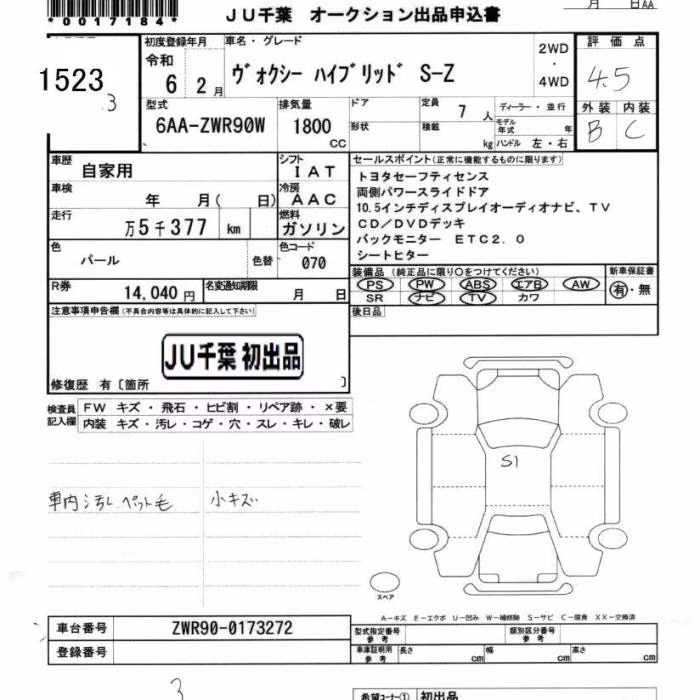 *00017184*
月 日AA
JU千葉 オークション出品申込書
1523
3
初度登録年月
令和
6年 2月
車名・グレード
ヴォクシー ハイブリッド S-Z
2WD
・
4WD
評価点
4.5
外装 内装
B C
型式
6AA-ZWR90W
排気量
1800
CC
ドア
形状
定員 7 人
積載 kg
ディーラー・並行
モデル年式 年
ハンドル 左・右
車歴 自家用
シフト IAT
車検 年 月( 日)
冷房 AAC
走行 万5千377 km
燃料 ガソリン
色 パール 色替
色コード 070
R券 14,040円
名変通知期限 月 日
セールスポイント(正常に機能するものに限ります)
トヨタセーフティセンス
両側パワースライドドア
10.5インチディスプレイオーディオナビ、TV
CD/DVDデッキ
バックモニター ETC2.0
シートヒター
装備品 (純正品に限り○をつけてください)
PS PW ABS エアB AW
SR ナビ TV カワ
新車保証書
有・無
後日品
注意事項申告欄(不具合内容等は具体的に記入して下さい)
JU千葉 初出品
修復歴 有〔箇所 〕
検査員記入欄
FW キズ・飛石・ヒビ割・リペア跡・×要
内装 キズ・汚レ・コゲ・穴・スレ・キレ・破レ
車内汚レ ペット毛
小キズ
S1
スペア
A-キズ E-エクボ U-凹み W-補修跡 S-サビ C-腐食 XX-交換済
車台番号 ZWR90-0173272
登録番号
型式指定番号 参考
類別区分番号 参考
車庫証明用 参考 長さ cm 幅 cm 高さ cm
3
希望コーナー① 初出品